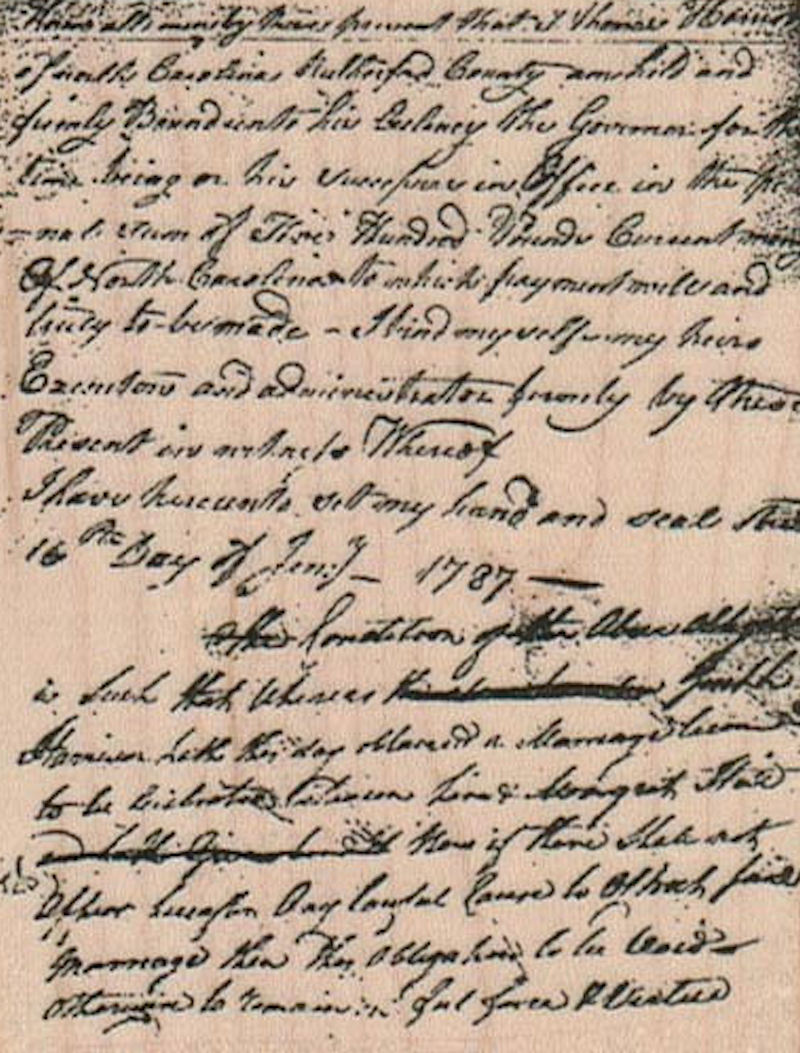 Know all men by these present that I Thomas Harrison
of north Carolina Rutherford County am held and
firmly Bound unto his Exclency the Governor for the
time being or his successors in Office in the
nal sum of Five Hundred Pounds Current money
Of North Carolina to which payment well and
truly to be made - I bind my self my heirs
Executors and administrators firmly by these
Present in witness Whereof
I have hereunto set my hand and seal this
16th Day of Jany - 1787 —
The Condition of the Above Obligat
is Such that Whereas
Harrison hath this day obtained a Marriage licen
to be Celebrated Between him & Margret
Now if there Shall not
After Any Lawful Cause to Obstruct said
Marriage then this Obligation to be Void
Otherwise to remain in ful force & Virtue